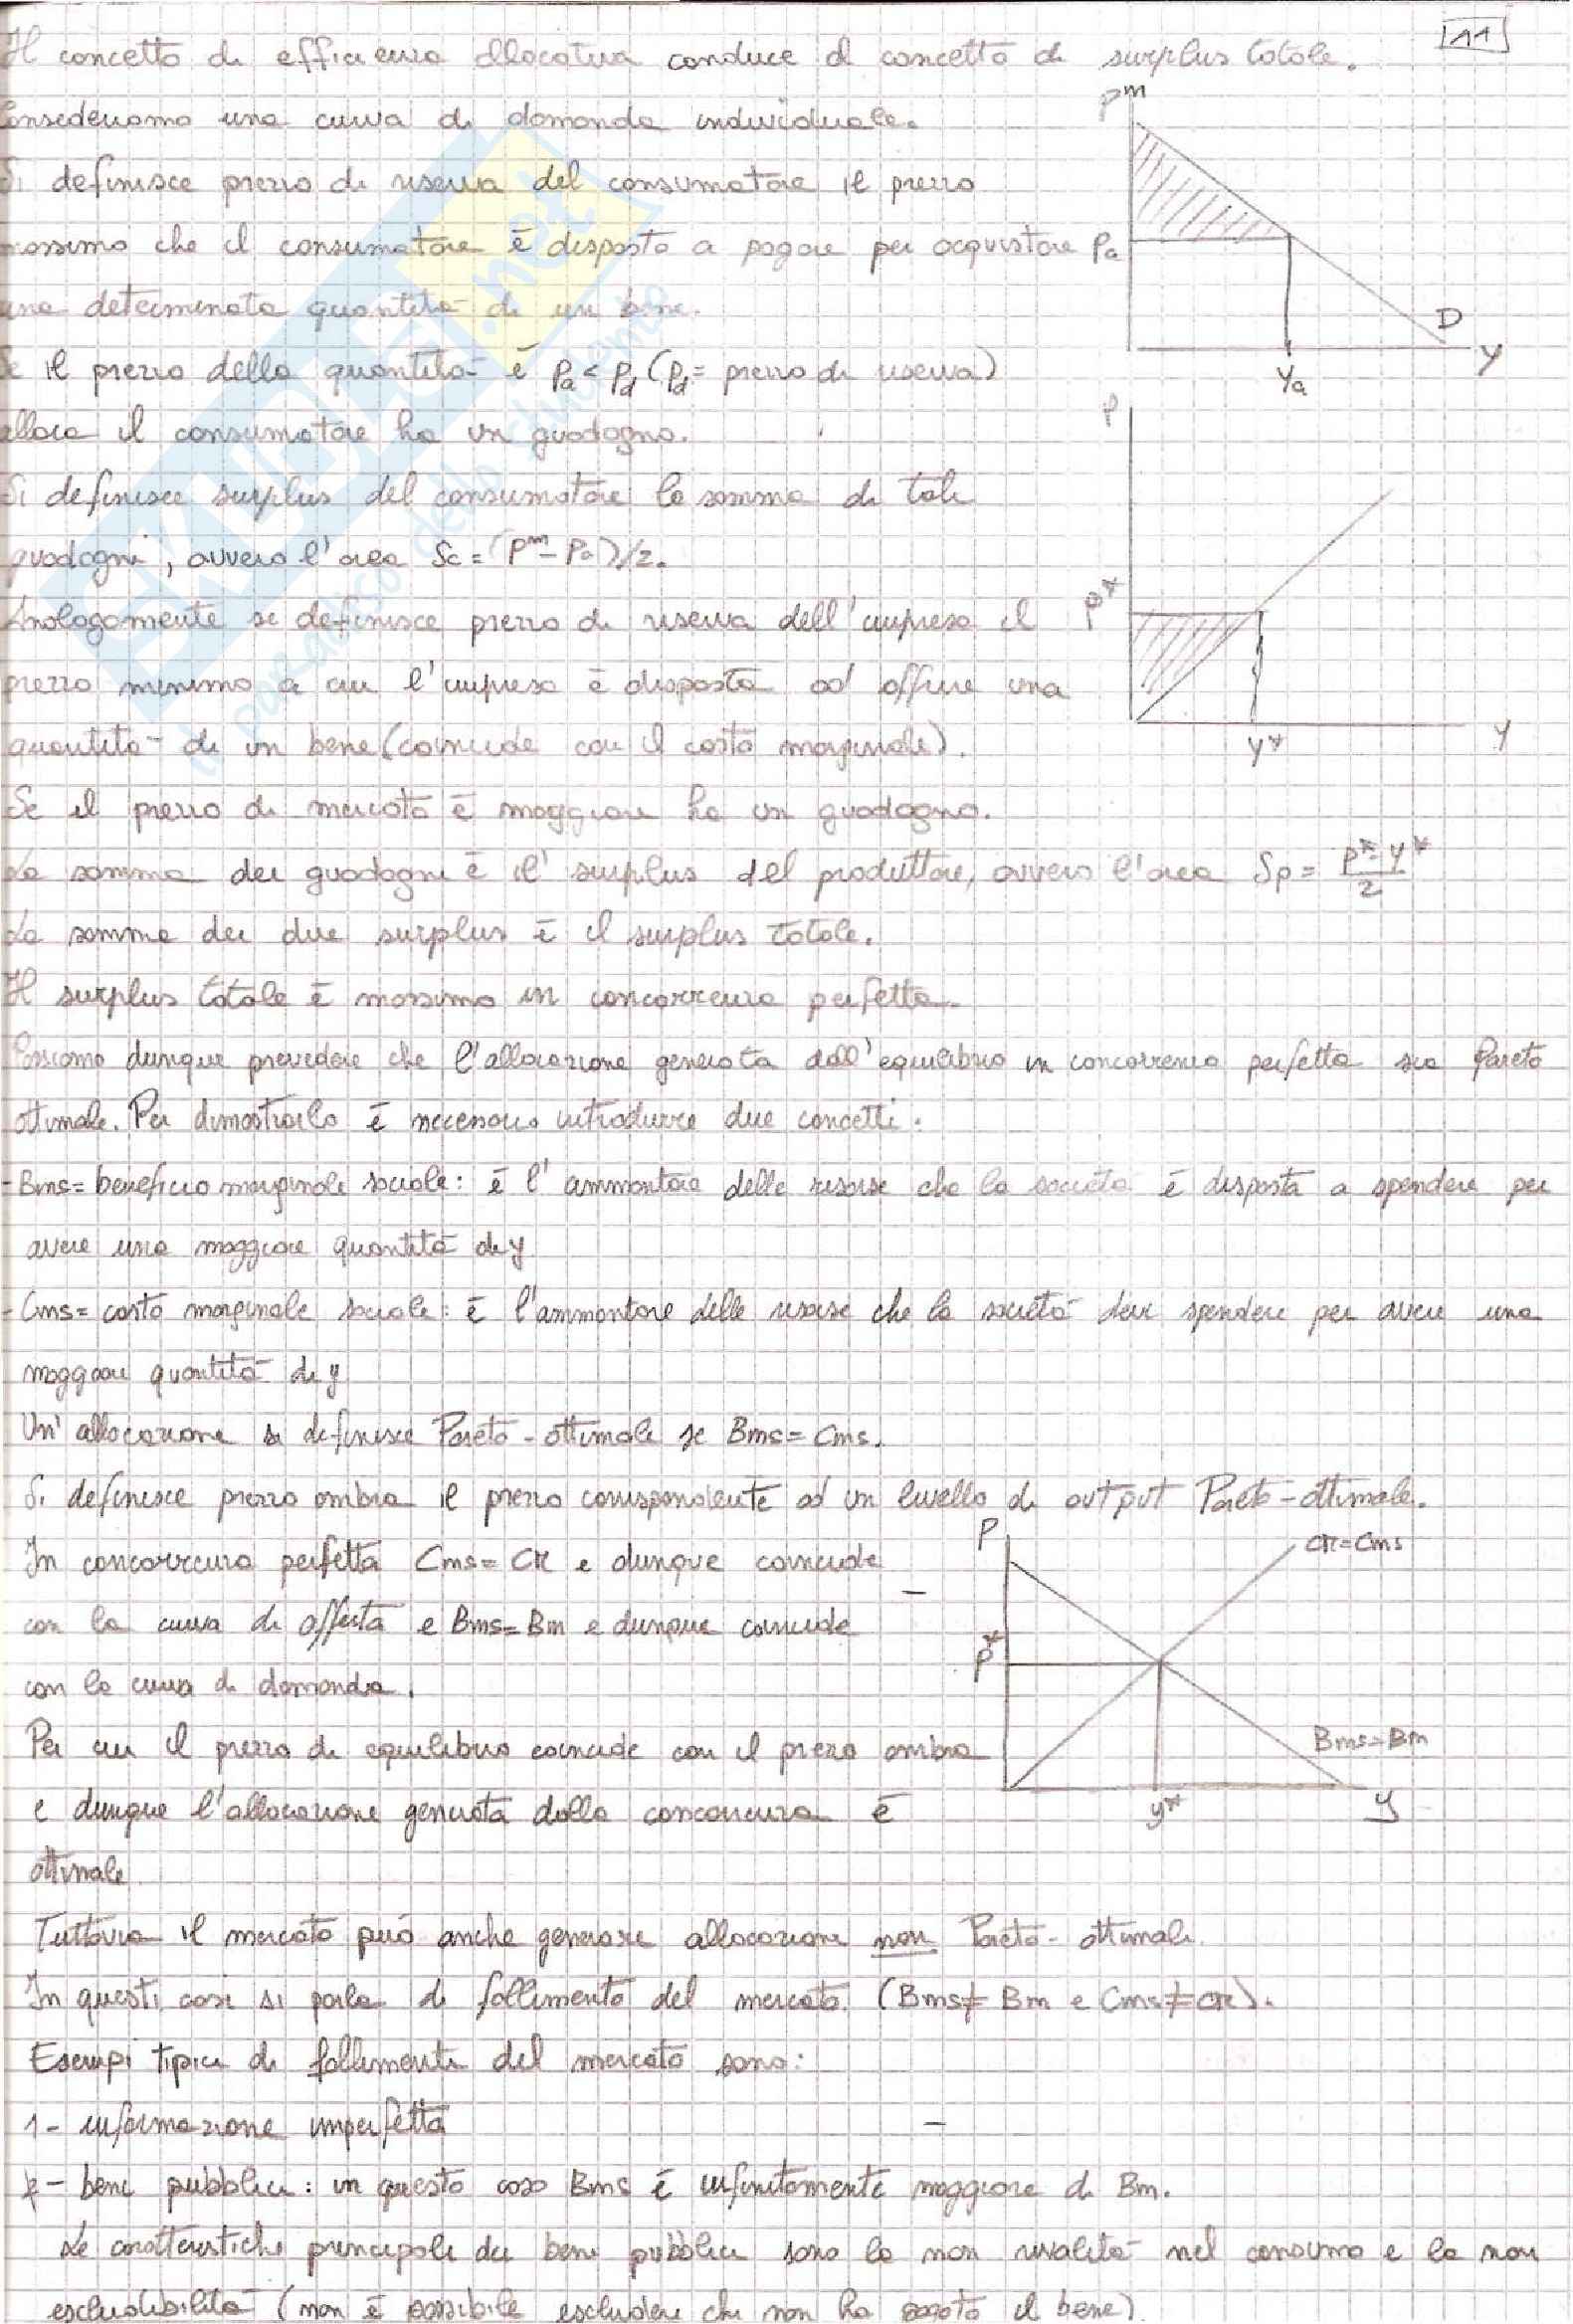 11
Il concetto di efficienza allocativa conduce al concetto di surplus totale.
Consideriamo una curva di domanda individuale.
Si definisce prezzo di riserva del consumatore il prezzo
massimo che il consumatore è disposto a pagare per acquistare
una determinata quantità di un bene.
Se il prezzo della quantità è Pa < Pd (Pd = prezzo di riserva)
allora il consumatore ha un guadagno.
Si definisce surplus del consumatore la somma di tali
guadagni, ovvero l'area Sc = (P^m - Pa)/2.
Analogamente si definisce prezzo di riserva dell'impresa il
prezzo minimo a cui l'impresa è disposta ad offrire una
quantità di un bene (coincide con il costo marginale).
Se il prezzo di mercato è maggiore ha un guadagno.
La somma dei guadagni è il surplus del produttore, ovvero l'area Sp = P* - y* / 2
La somma dei due surplus è il surplus totale.
Il surplus totale è massimo in concorrenza perfetta.
Possiamo dunque prevedere che l'allocazione generata dall'equilibrio in concorrenza perfetta sia Pareto
ottimale. Per dimostrarlo è necessario introdurre due concetti:
- Bms = beneficio marginale sociale: è l'ammontare delle risorse che la società è disposta a spendere per
avere una maggiore quantità di y
- Cms = costo marginale sociale: è l'ammontare delle risorse che la società deve spendere per avere una
maggiore quantità di y
Un'allocazione si definisce Pareto-ottimale se Bms = Cms.
Si definisce prezzo ombra il prezzo corrispondente ad un livello di output Pareto-ottimale.
In concorrenza perfetta Cms = CM e dunque coincide
con la curva di offerta e Bms = Bm e dunque coincide
con la curva di domanda.
Per cui il prezzo di equilibrio coincide con il prezzo ombra
e dunque l'allocazione generata dalla concorrenza è
ottimale
Tuttavia il mercato può anche generare allocazione non Pareto-ottimali.
In questi casi si parla di fallimento del mercato (Bms ≠ Bm e Cms ≠ CM).
Esempi tipici di fallimenti del mercato sono:
1- informazione imperfetta
2- beni pubblici: in questo caso Bms è infinitamente maggiore di Bm.
Le caratteristiche principali dei beni pubblici sono la non rivalità nel consumo e la non
escludibilità (non è possibile escludere chi non ha pagato il bene)
P^m
Pa
D
ya
y
P
P*
y*
y
P
CM = Cms
P*
Bms = Bm
y*
y